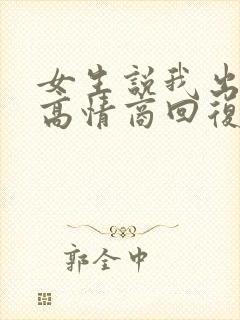 女生說我出
高情商回復
郭全中